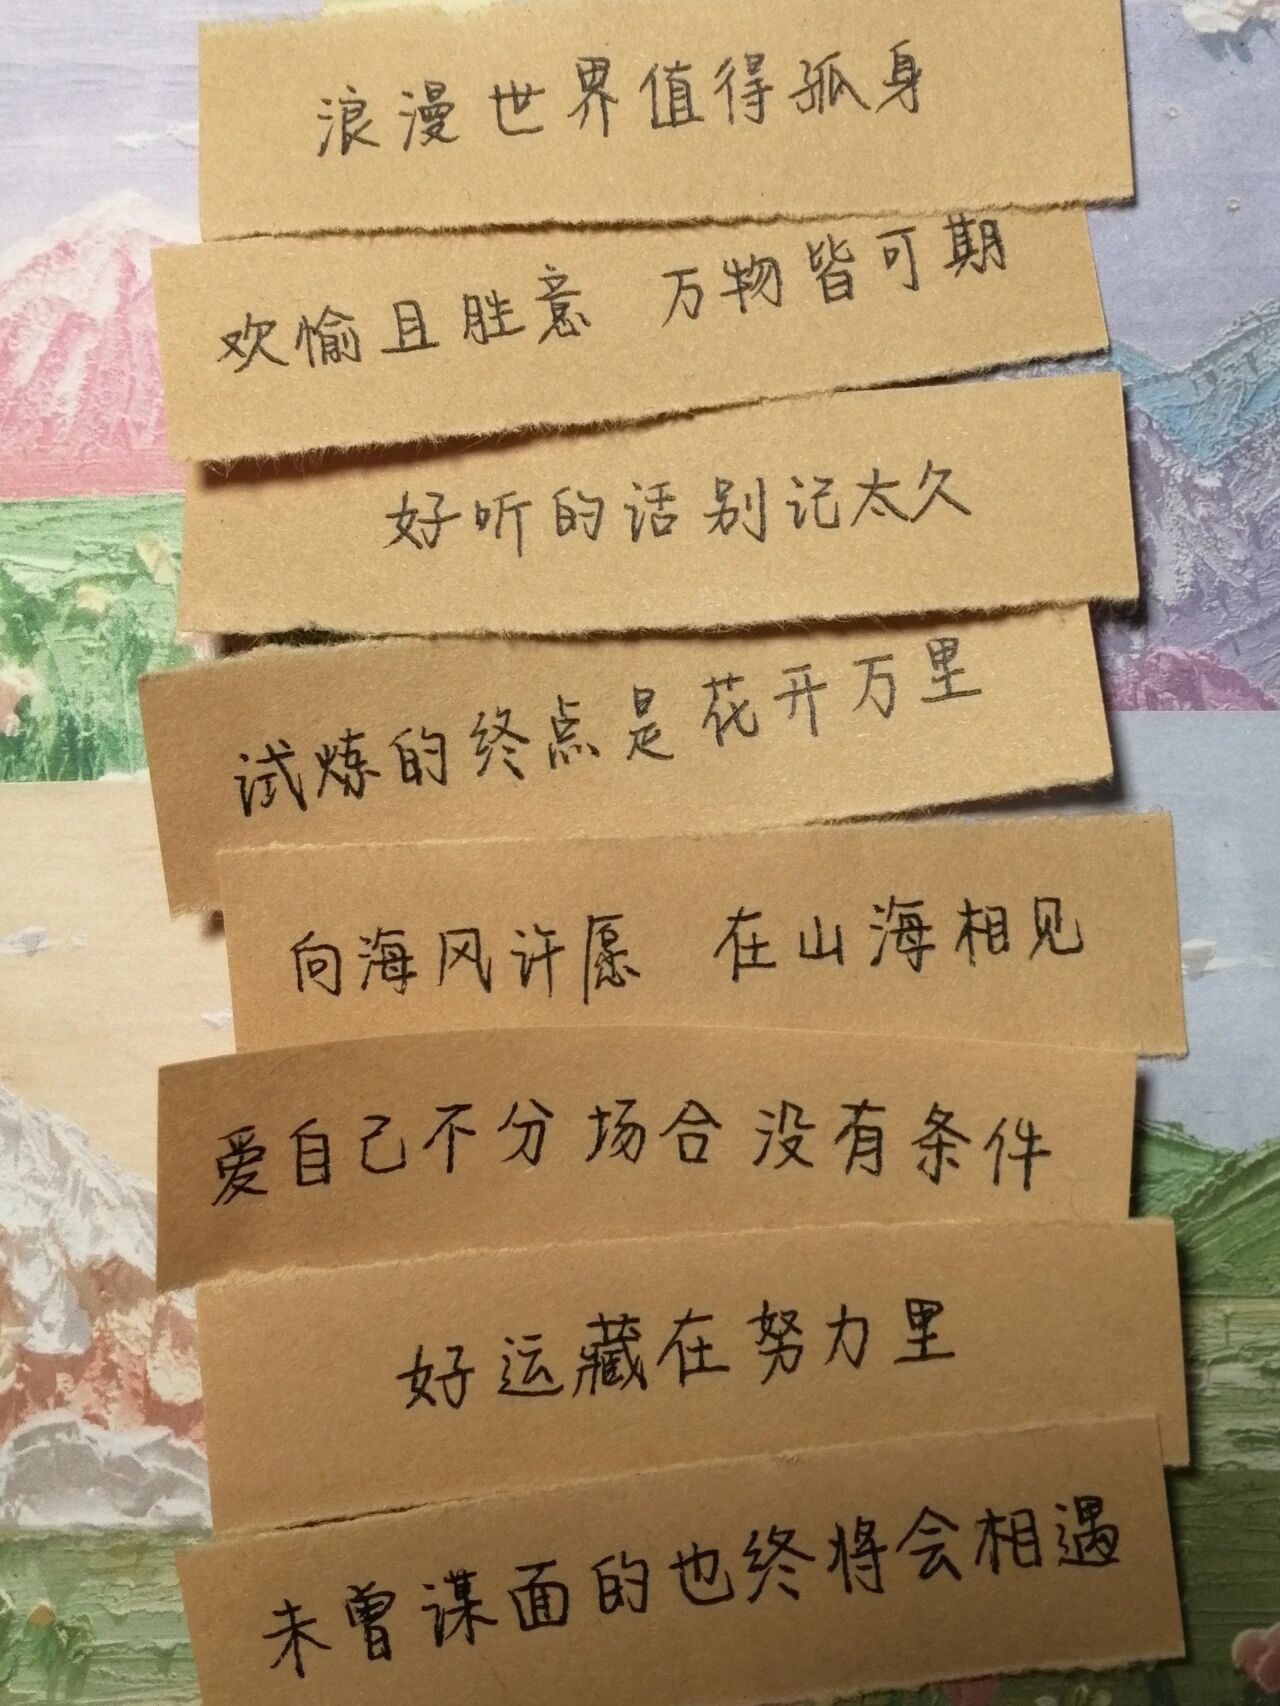 浪漫世界值得孤身
欢愉且胜意 万物皆可期
好听的话别记太久
试炼的终点是花开万里
向海风许愿 在山海相见
爱自己不分场合没有条件
好运藏在努力里
未曾谋面的也终将会相遇